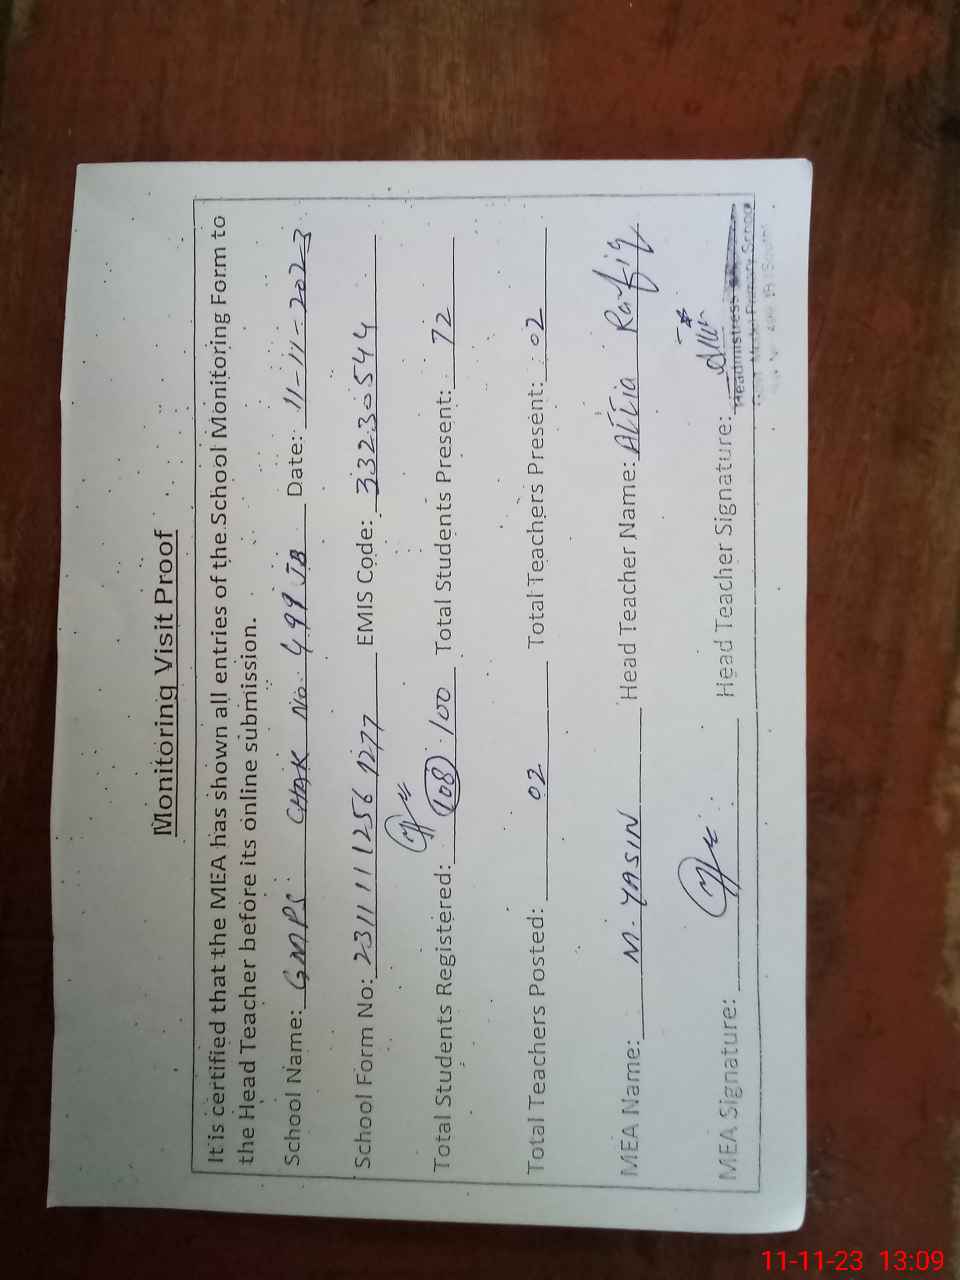 Monitoring Visit Proof
It is certified that the MEA has shown all entries of the School Monitoring Form to
the Head Teacher before its online submission.
School Name: GMPS CHAK No. 499 JB Date: 11-11-2023
School Form No: 23111112561277 EMIS Code: 33230544
Total Students Registered: 108 100 Total Students Present: 72
Total Teachers Posted: 02 Total Teachers Present: 02
MEA Name: M. YASIN Head Teacher Name: Attia Rafiq
MEA Signature: Head Teacher Signature:
Headmistress
Model Primary School
11-11-23 13:09